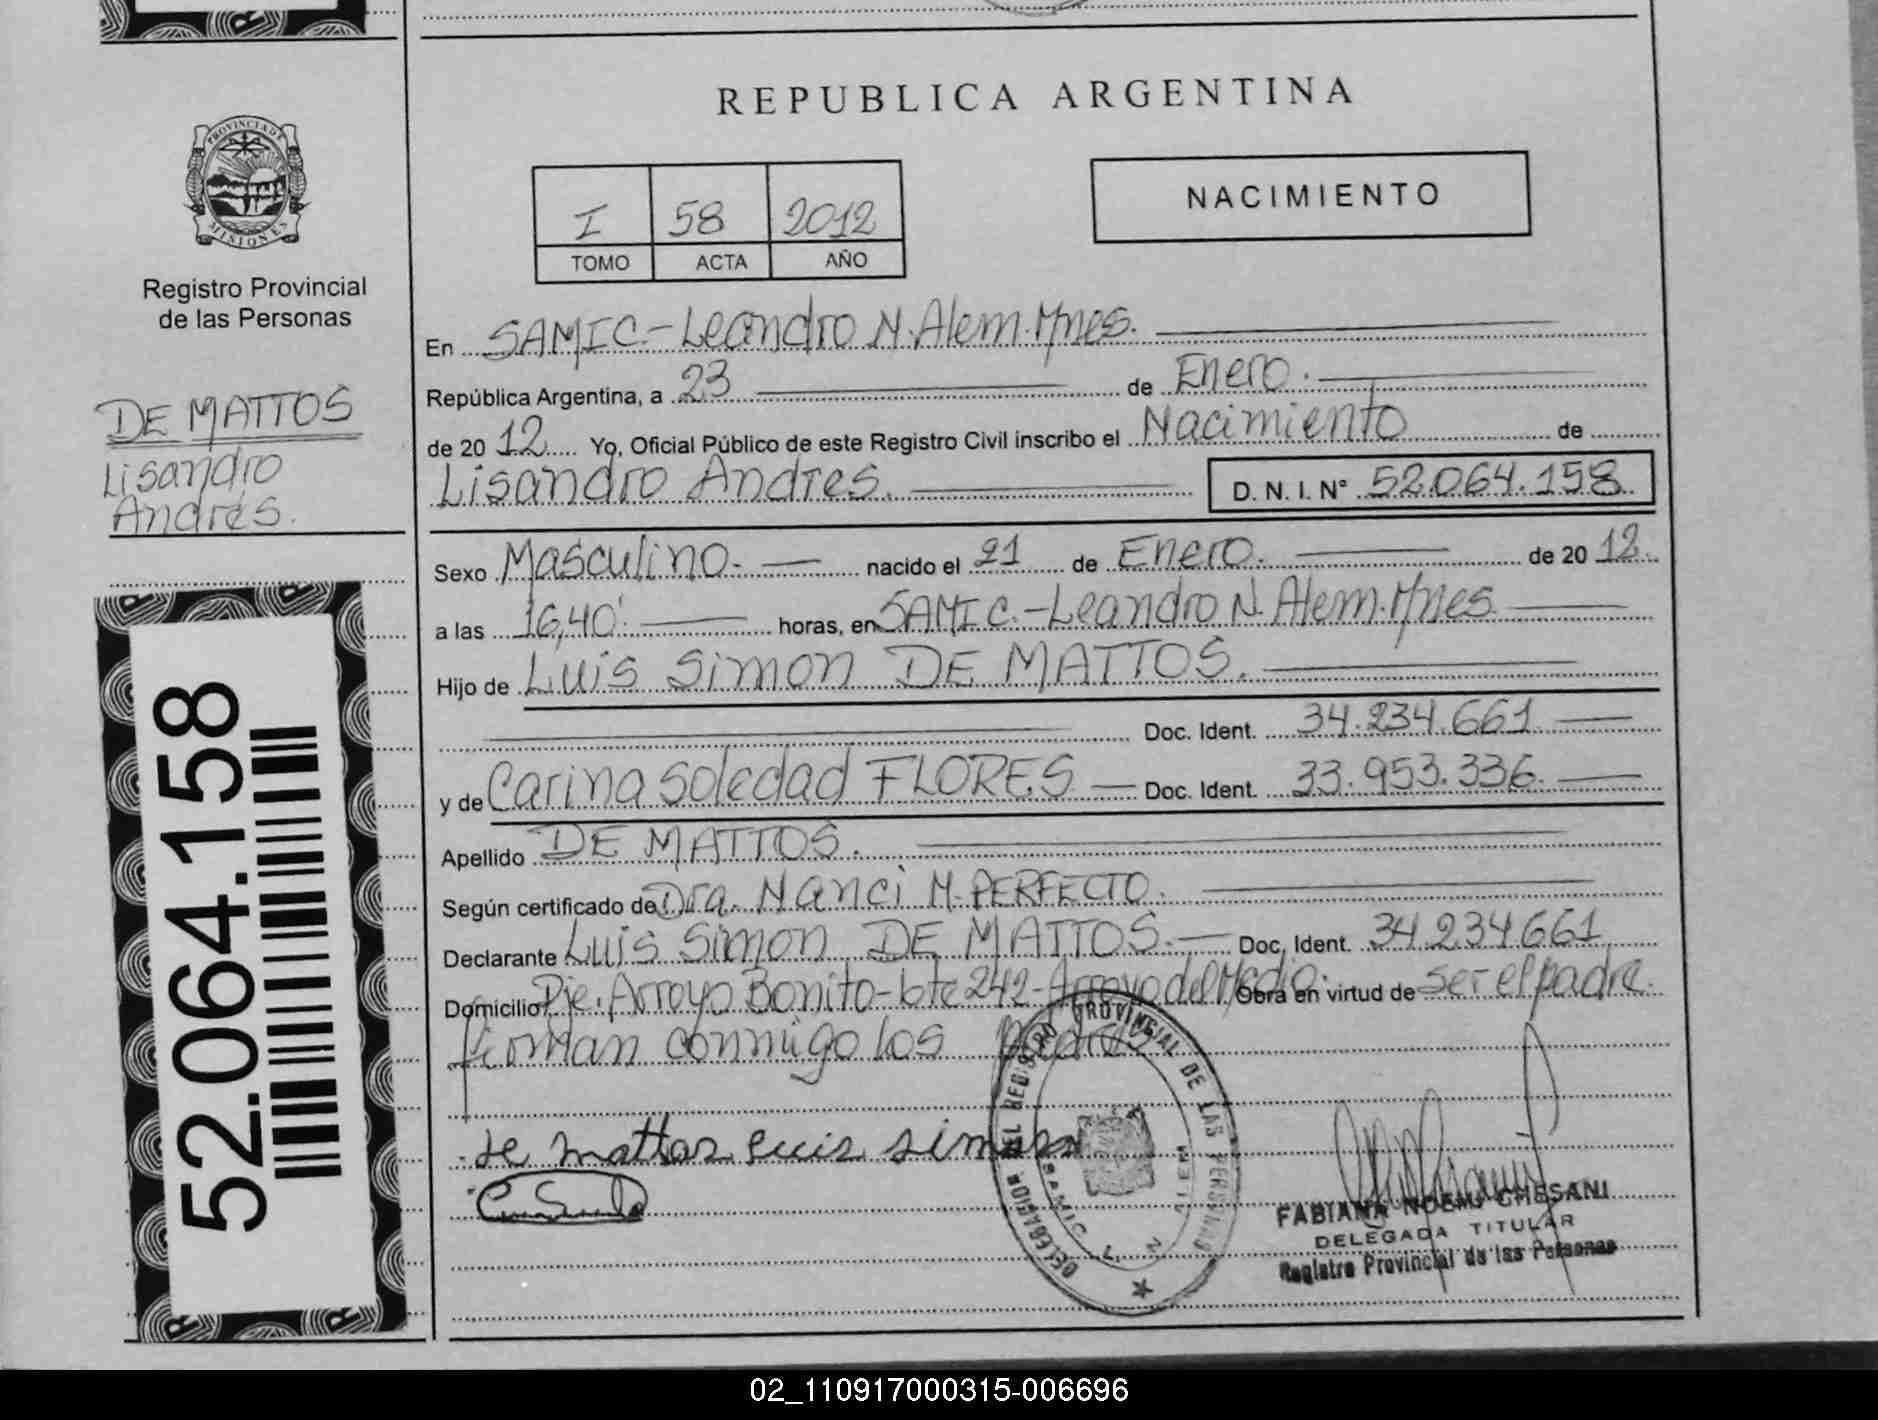 REPUBLICA ARGENTINA
NACIMIENTO
I 58 2012
TOMO ACTA AÑO
PROVINCIA DE MISIONES
Registro Provincial
de las Personas
DE MATTOS
Lisandro
Andrés.
52.064.158
En SAMIC.-Leandro N.Alem.Mnes.
República Argentina, a 23 de Enero.
de 20 12 Yo, Oficial Público de este Registro Civil inscribo el Nacimiento de
Lisandro Andres. D. N. I. N° 52.064.158
Sexo Masculino.- nacido el 21 de Enero. de 20 12.
a las 16,40'. horas, en SAMIC.-Leandro N.Alem.Mnes.
Hijo de Luis Simon DE MATTOS.
Doc. Ident. 34.234.661
y de Carina Soledad FLORES Doc. Ident. 33.953.336.
Apellido DE MATTOS.
Según certificado de Dra. Nanci M. PERFECTO.
Declarante Luis Simon DE MATTOS. Doc, Ident. 34.234.661
Domicilio Pje. Arroyo Bonito-lote 242-Arroyo del Medio. Obra en virtud de ser el padre.
firman conmigo los Padres
de mattos luis simon
DELEGACION DEL REGISTRO PROVINCIAL DE LAS PERSONAS
SAMIC L. N. ALEM
FABIANA NOEMI CHESANI
DELEGADA TITULAR
Registro Provincial de las Personas
02_110917000315-006696